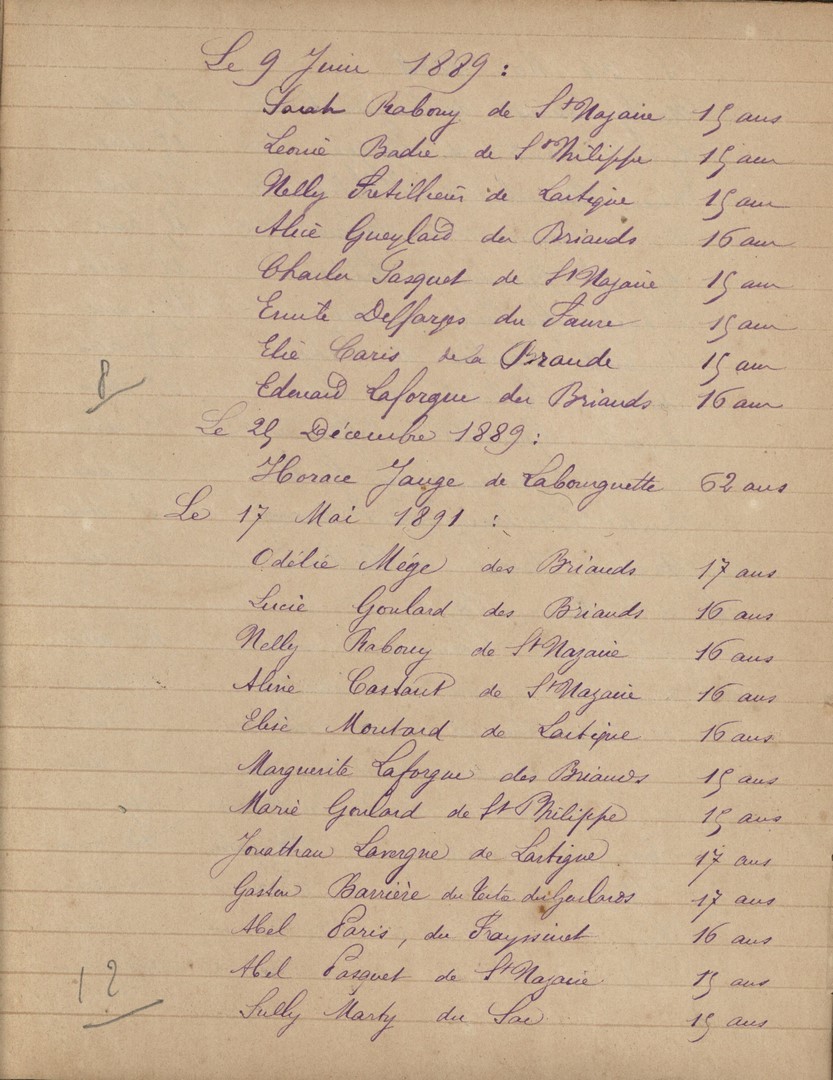 Le 9 Juin 1889 :
Sarah Rabouy de St Nazaire 15 ans
Léonie Badie de St Philippe 15 ans
Nelly Fretillière de Lartigue 15 ans
Alice Gueylard des Briands 16 ans
Charles Pasquet de St Nazaire 15 ans
Ernute Delfarges du Faure 15 ans
Elie Caris de la Brande 15 ans
8
Edouard Laforgue des Briands 16 ans
Le 25 Décembre 1889 :
Horace Jauge de Labourguette 62 ans
Le 17 Mai 1891 :
Odélie Mége des Briands 17 ans
Lucie Goulard des Briands 16 ans
Nelly Rabouy de St Nazaire 16 ans
Aline Castant de St Nazaire 16 ans
Elise Moutard de Lartigue 16 ans
Marguerite Laforgue des Briands 15 ans
Marie Goulard de St Philippe 15 ans
Jonathan Lavergne de Lartigue 17 ans
Gaston Barrière du 17 ans
Abel Paris, du Frayssinet 16 ans
Abel Pasquet de St Nazaire 15 ans
12
Sully Marty du Sac 15 ans